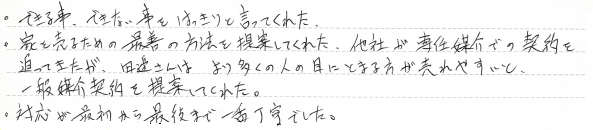 ・できる事、できない事をはっきりと言ってくれた。
・家を売るための最善の方法を提案してくれた。他社が専任媒介での契約を
迫ってきたが、田邉さんは より多くの人の目にとまる方が売れやすいと、
一般媒介契約を提案してくれた。
・対応が最初から最後まで一番丁寧でした。